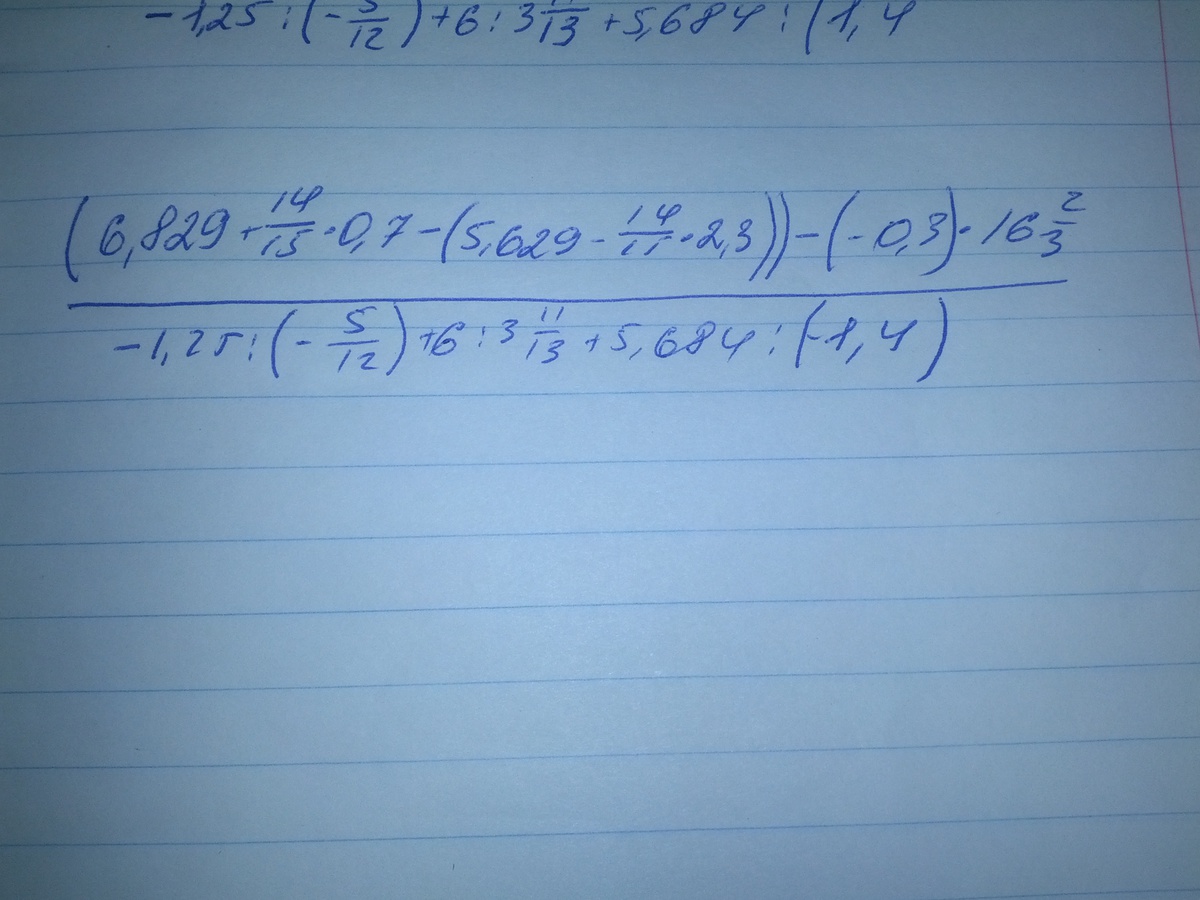 -1,25 : (- 5/12) + 6 : 3 11/13 + 5,684 : (1,4
(6,829 + 14/15 · 0,7 - (5,629 - 14/15 · 2,3)) - (-0,3) · 16 2/3
-1,25 : (- 5/12) + 6 : 3 11/13 + 5,684 : (-1,4)